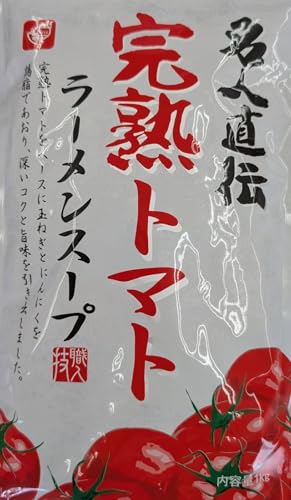 名人直伝
完熟トマト
ラーメンスープ
職人技
完熟トマトをベースに玉ねぎとにんにくを
鶏脂であおり、深いコクと旨味を引き出しました。
内容量1kg